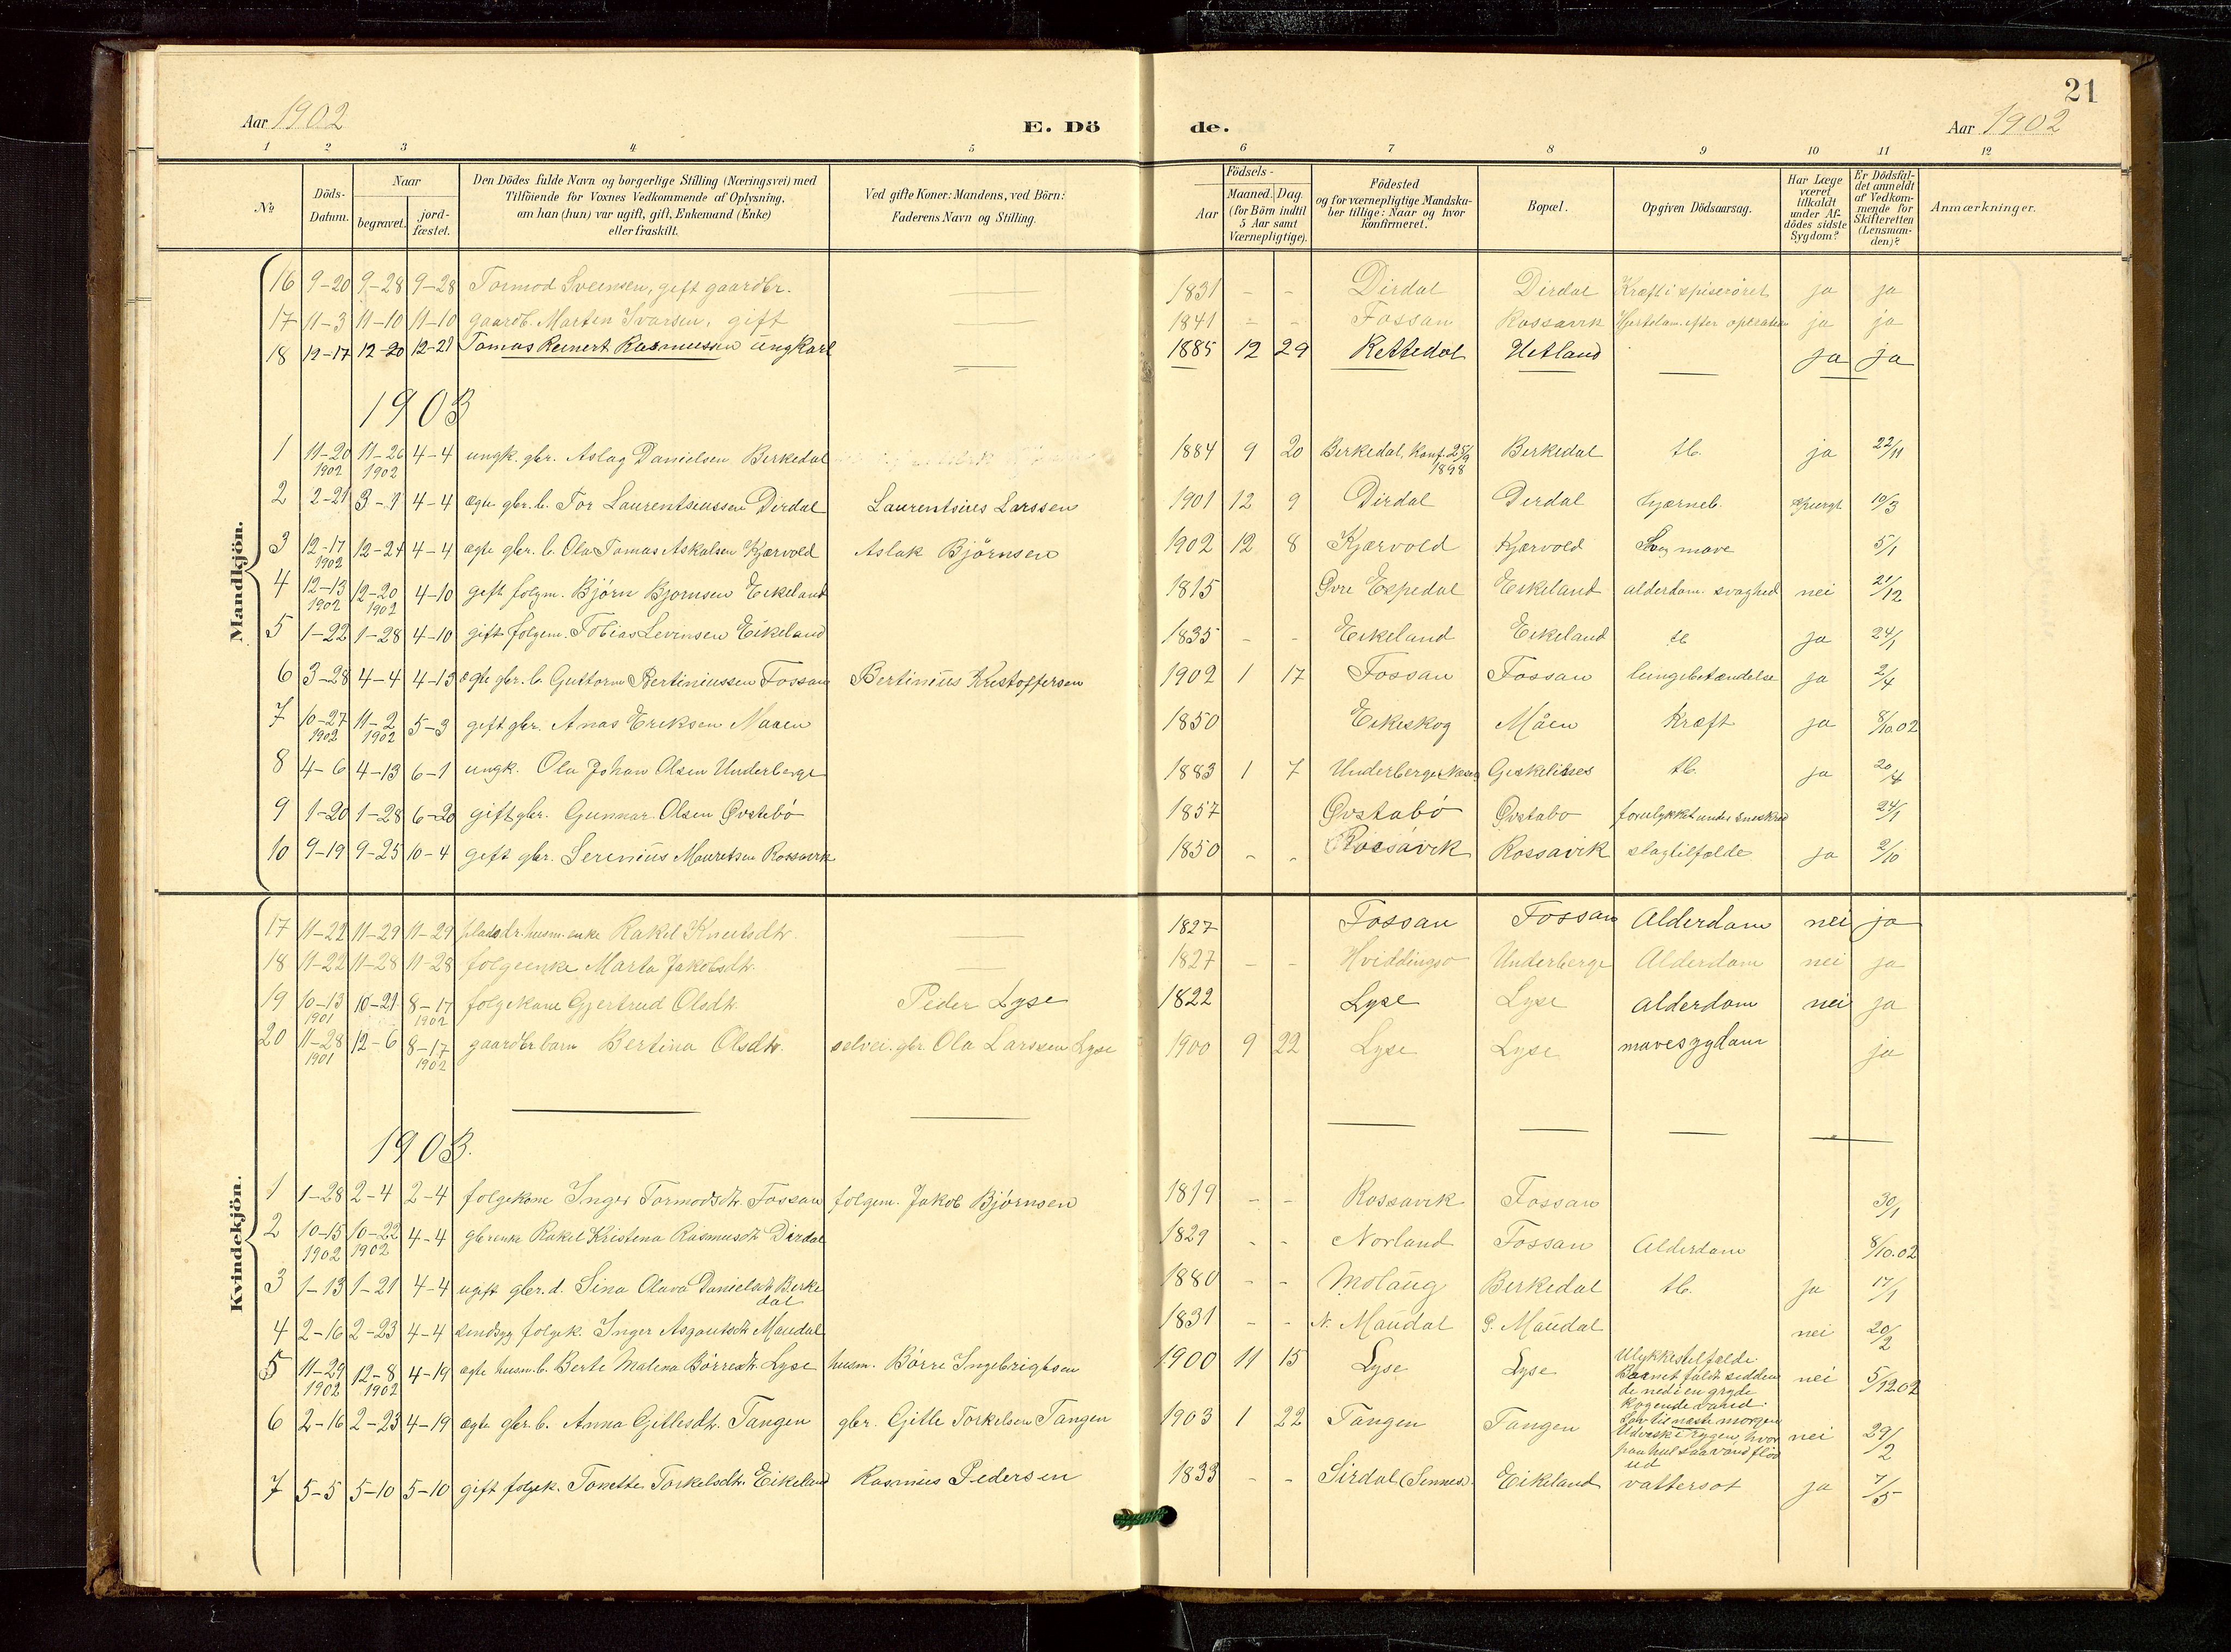 21
Aar 1902 E. Dö de. Aar 1902
1 2 3 4 5 6 7 8 9 10 11 12
№ Döds-Datum. Naar begravet. jord-fæstet. Den Dödes fulde Navn og borgerlige Stilling (Næringsvei) med Tilföiende for Voxnes Vedkommende af Oplysning, om han (hun) var ugift, gift, Enkemand (Enke) eller fraskilt. Ved gifte Koner: Mandens, ved Börn: Faderens Navn og Stilling. Födsels- Aar Maaned. Dag. (for Börn indtil 5 Aar samt Værnepligtige). Födested og for værnepligtige Mandskaber tillige: Naar og hvor konfirmeret. Bopæl. Opgiven Dödsaarsag. Har Læge været tilkaldt under Afdödes sidste Sygdom? Er Dödsfaldet anmeldt af Vedkommende for Skifteretten (Lensmanden)? Anmærkninger.
Mandkjön.
16 9-20 9-28 9-28 Tormod Sveinsen, gift gaardbr. 1831 - - Dirdal Dirdal Kræft i spiserøret ja ja
17 11-3 11-10 11-10 gaardb. Marten Ivarsen, gift 1841 - - Fossan Rossavik Hjertelam. efter operation ja ja
18 12-17 12-20 12-21 Tomas Reinert Rasmussen ungkarl 1885 12 29 Kettedal Hetland ja ja
1903
1 11-20 1902 11-26 1902 4-4 ungk. gbr. Aslag Danielsen Berkedal 1884 9 20 Berkedal, Konf. 25/9 1898 Berkedal tb. ja 22/11
2 2-21 3-1 4-4 ægte gbr. b. Tor Laurentsiussen Dirdal Laurentsius Larssen 1901 12 9 Dirdal Dirdal hjerneb. spurgt 10/3
3 12-17 1902 12-24 4-4 ægte gbr. b. Ola Tomas Aslaksen Kjærvold Aslak Björnsen 1902 12 8 Kjærvold Kjærvold Svag mave 5/1
4 12-13 1902 12-20 1902 4-10 gift folgm. Björn Bjornsen Eikeland 1815 Øvre Espedal Eikeland alderdom. svaghed nei 21/12
5 1-22 1-28 4-10 gift folgem. Tobias Levensen Eikeland 1835 - - Eikeland Eikeland tb ja 24/1
6 3-28 4-4 4-13 ægte gbr. b. Guttorm Bertiniussen Fossan Bertinius Kristoffersen 1902 1 17 Fossan Fossan lungebetændelse ja 2/4
7 10-27 1902 11-2 1902 5-3 gift gbr. Anas Eriksen Maaen 1850 Eikeskog Måen Kræft ja 8/10.02
8 4-6 4-13 6-1 ungk. Ola Johan Olsen Underberge 1883 1 7 Underberge Geskelidses tb. ja 20/4
9 1-20 1-28 6-20 gift gbr. Gunnar Olsen Øvstebö 1857 Øvstabö Øvstabo forulykket under sneskred 24/1
10 9-19 9-25 10-4 gift gbr. Serenius Mauritsen Rossavik 1850 - - Rossavik Rossavik slagtilfælde ja 2/10
Kvindekjön.
17 11-22 11-29 11-29 husm. enke Rakel Knutsdtr. 1827 Fossan Fossan Alderdom nei ja
18 11-22 11-28 11-28 folgeenke Marta Jakobsdtr. 1827 - - Hviddingso Underberge Alderdom nei ja
19 10-13 1901 10-21 8-17 1902 folgekone Gjertrud Olsdtr. Peder Lyse 1822 Lyse Lyse Alderdom nei ja
20 11-28 1901 12-6 8-17 1902 gaardbr barn Bertina Olsdtr. selvei. gbr Ola Larssen Lyse 1900 9 22 Lyse Lyse mavesygdom ja
1903.
1 1-28 2-4 2-4 folgekone Inger Tormodsdtr. Fossan folgem. Jakob Björnsen 1819 - - Rossavik Fossan 30/1
2 10-15 1902 10-22 1902 4-4 gbrenke Rakel Kristena Rasmusdt. Dirdal 1829 - - Norland Fossan Alderdom 8/10.02
3 1-13 1-21 4-4 ugift gbr. d. Sina Olava Danielsdt Berkedal 1880 - - Molaug Berkedal tb. ja 17/1
4 2-16 2-23 4-4 sindsyg folgek. Inger Asgautsdt Maudal 1831 - - N. Maudal P. Maudal nei 20/2
5 11-29 1902 12-8 1902 4-19 ægte husm. b. Berte Malena Börresdt. Lyse husm. Börre Ingebrigtsen 1900 11 15 Lyse Lyse Ulykkestilfælde. Barnet faldt siddende ned i en gryde kogende vand. nei 5/12.02
6 2-16 2-23 4-19 ægte gbr. b. Anna Gitlesdtr. Tangen gbr. Gitle Torkelsen Tangen 1903 1 22 Tangen Tangen Udvækst i rygen, hvor paa hul saa vand flöd ud nei 29/2
7 5-5 5-10 5-10 gift folgek. Tonette Torkelsdtr. Eikeland Rasmus Pedersen 1833 - - Sirdal (Sinnes). Eikeland vattersot ja 7/5